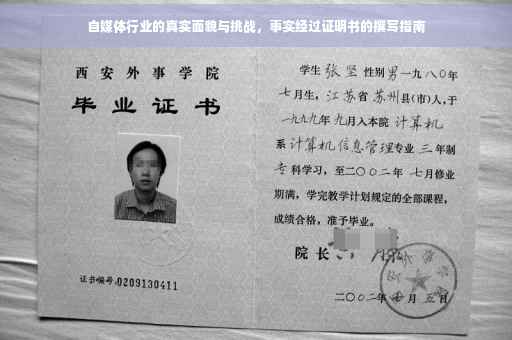 自媒体行业的真实面貌与挑战，事实经过证明书的撰写指南
西安外事学院
毕业证书
证书编号:0209130411
学生 张坚 性别 男 一九八〇年
七月生，江苏省 苏州县(市)人，于
一九九九年 九月入本院 计算机
系 计算机信息管理专业 三 年制
专 科学习，至二〇〇二年 七月修业
期满，学完教学计划规定的全部课程，
成绩合格，准予毕业。
院 长
二〇〇二年 月 五 日